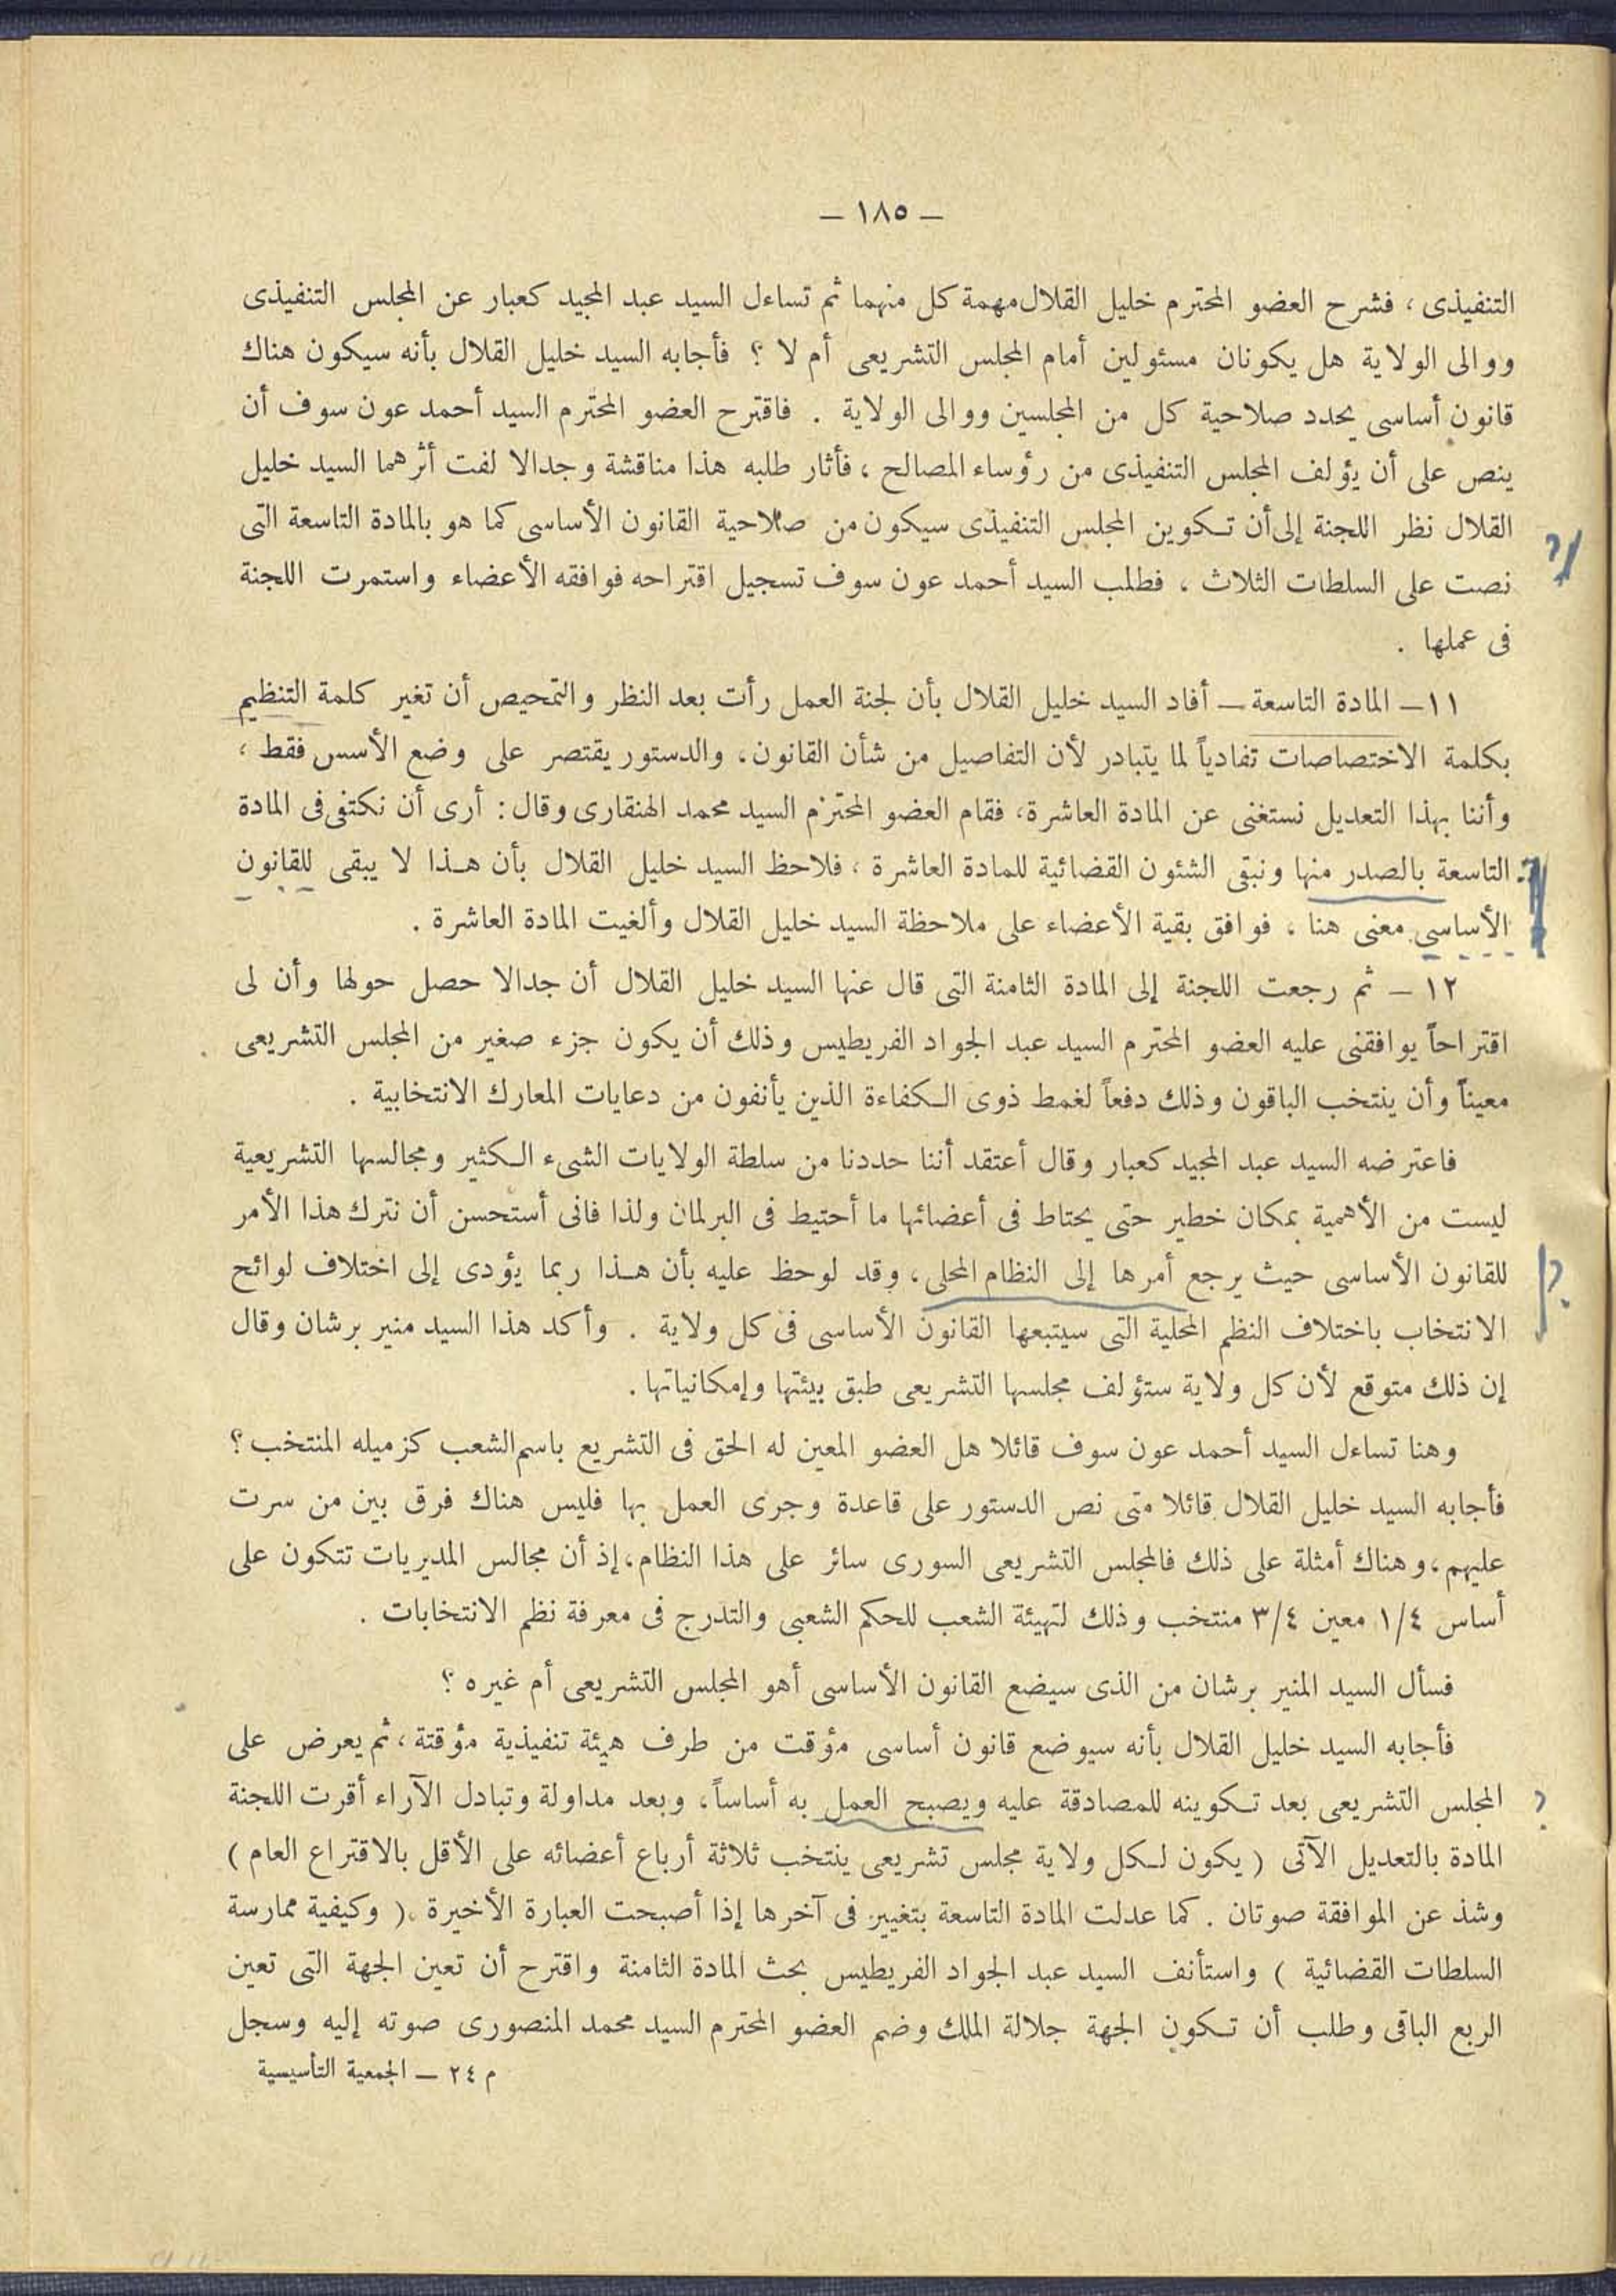 — ١٨٥ —
التنفيذى ، فشرح العضو المحترم خليل القلال مهمة كل منهما ثم تساءل السيد عبد المجيد كعبار عن المجلس التنفيذى
ووالى الولاية هل يكونان مسئولين أمام المجلس التشريعى أم لا ؟ فأجابه السيد خليل القلال بأنه سيكون هناك
قانون أساسى يحدد صلاحية كل من المجلسين ووالى الولاية . فاقترح العضو المحترم السيد أحمد عون سوف أن
ينص على أن يؤلف المجلس التنفيذى من رؤساء المصالح ، فأثار طلبه هذا مناقشة وجدالا لفت أثرهما السيد خليل
القلال نظر اللجنة إلى أن تكوين المجلس التنفيذى سيكون من صلاحية القانون الأساسى كما هو بالمادة التاسعة التى
نصت على السلطات الثلاث ، فطلب السيد أحمد عون سوف تسجيل اقتراحه فوافقه الأعضاء واستمرت اللجنة
فى عملها .
١١ — المادة التاسعة — أفاد السيد خليل القلال بأن لجنة العمل رأت بعد النظر والتمحيص أن تغير كلمة التنظيم
بكلمة الاختصاصات تفادياً لما يتبادر لأن التفاصيل من شأن القانون ، والدستور يقتصر على وضع الأسس فقط ،
وأننا بهذا التعديل نستغنى عن المادة العاشرة ، فقام العضو المحترم السيد محمد الهنقارى وقال : أرى أن نكتفى فى المادة
التاسعة بالصدر منها ونبقى الشئون القضائية للمادة العاشرة ، فلاحظ السيد خليل القلال بأن هذا لا يبقى للقانون
الأساسى معنى هنا ، فوافق بقية الأعضاء على ملاحظة السيد خليل القلال وألغيت المادة العاشرة .
١٢ — ثم رجعت اللجنة إلى المادة الثامنة التى قال عنها السيد خليل القلال أن جدالا حصل حولها وأن لى
اقتراحاً يوافقنى عليه العضو المحترم السيد عبد الجواد الفريطيس وذلك أن يكون جزء صغير من المجلس التشريعى
معيناً وأن ينتخب الباقون وذلك دفعاً لغمط ذوى الكفاءة الذين يأنفون من دعايات المعارك الانتخابية .
فاعترضه السيد عبد المجيد كعبار وقال أعتقد أننا حددنا من سلطة الولايات الشىء الكثير ومجالسها التشريعية
ليست من الأهمية بمكان خطير حتى يحتاط فى أعضائها ما أحتيط فى البرلمان ولذا فانى أستحسن أن نترك هذا الأمر
للقانون الأساسى حيث يرجع أمرها إلى النظام المحلى ، وقد لوحظ عليه بأن هذا ربما يؤدى إلى اختلاف لوائح
الانتخاب باختلاف النظم المحلية التى سيتبعها القانون الأساسى فى كل ولاية . وأكد هذا السيد منير برشان وقال
إن ذلك متوقع لأن كل ولاية ستؤلف مجلسها التشريعى طبق بيئتها وإمكانياتها .
وهنا تساءل السيد أحمد عون سوف قائلا هل العضو المعين له الحق فى التشريع باسم الشعب كزميله المنتخب ؟
فأجابه السيد خليل القلال قائلا متى نص الدستور على قاعدة وجرى العمل بها فليس هناك فرق بين من سرت
عليهم ، وهناك أمثلة على ذلك فالمجلس التشريعى السورى سائر على هذا النظام ، إذ أن مجالس المديريات تتكون على
أساس ١/٤ معين ٣/٤ منتخب وذلك لتهيئة الشعب للحكم الشعبى والتدرج فى معرفة نظم الانتخابات .
فسأل السيد المنير برشان من الذى سيضع القانون الأساسى أهو المجلس التشريعى أم غيره ؟
فأجابه السيد خليل القلال بأنه سيوضع قانون أساسى مؤقت من طرف هيئة تنفيذية مؤقتة ، ثم يعرض على
المجلس التشريعى بعد تكوينه للمصادقة عليه ويصبح العمل به أساساً ، وبعد مداولة وتبادل الآراء أقرت اللجنة
المادة بالتعديل الآتى ( يكون لكل ولاية مجلس تشريعى ينتخب ثلاثة أرباع أعضائه على الأقل بالاقتراع العام )
وشذ عن الموافقة صوتان . كما عدلت المادة التاسعة بتغيير فى آخرها إذا أصبحت العبارة الأخيرة ( وكيفية ممارسة
السلطات القضائية ) واستأنف السيد عبد الجواد الفريطيس بحث المادة الثامنة واقترح أن تعين الجهة التى تعين
الربع الباقى وطلب أن تكون الجهة جلالة الملك وضم العضو المحترم السيد محمد المنصورى صوته إليه وسجل
م ٢٤ — الجمعية التأسيسية